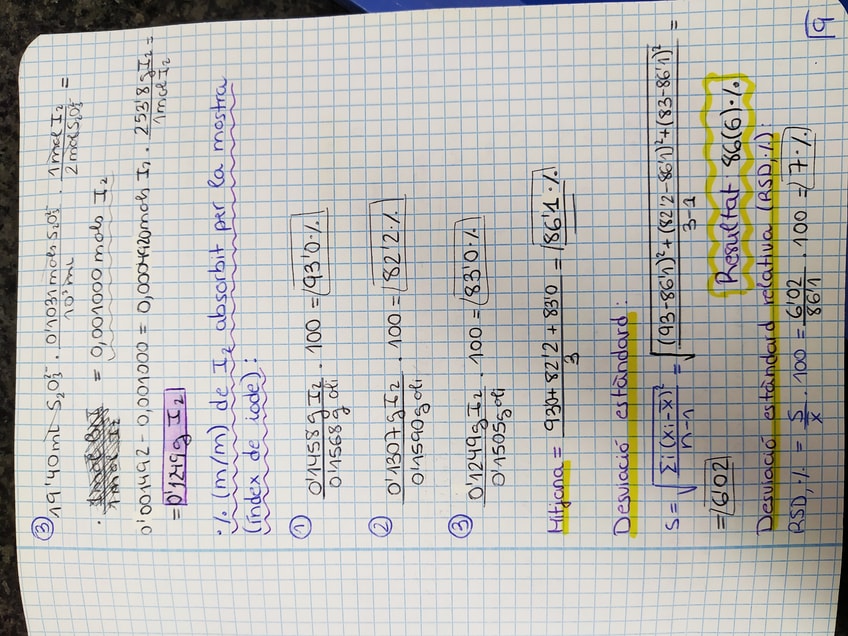 ③ 19'40 mL S₂O₃²⁻ · 0'1031 mols S₂O₃²⁻ / 10³ mL · 1 mol I₂ / 2 mol S₂O₃²⁻ =
· = 0,001000 mols I₂
0'001492 - 0,001000 = 0,0004920 mols I₂ · 253'8 g I₂ / 1 mol I₂ =
= 0'1249 g I₂
% (m/m) de I₂ absorbit per la mostra
(índex de iode):
① 0'1458 g I₂ / 0'1568 g oli · 100 = 93'0 %
② 0'1307 g I₂ / 0'1590 g oli · 100 = 82'2 %
③ 0'1249 g I₂ / 0'1505 g oli · 100 = 83'0 %
Mitjana = 930 + 82'2 + 83'0 / 3 = 86'1 %
Desviació estàndard:
S = √ Σi (xi - x̄)² / n-1 = √ (93-86'1)² + (82'2-86'1)² + (83-86'1)² / 3-1 =
= 6'02
Resultat: 86(6) %
Desviació estàndard relativa (RSD, %):
RSD, % = S / x̄ · 100 = 6'02 / 86'1 · 100 = 7 %
9